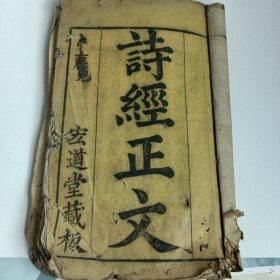 詩經正文
宏道堂藏板